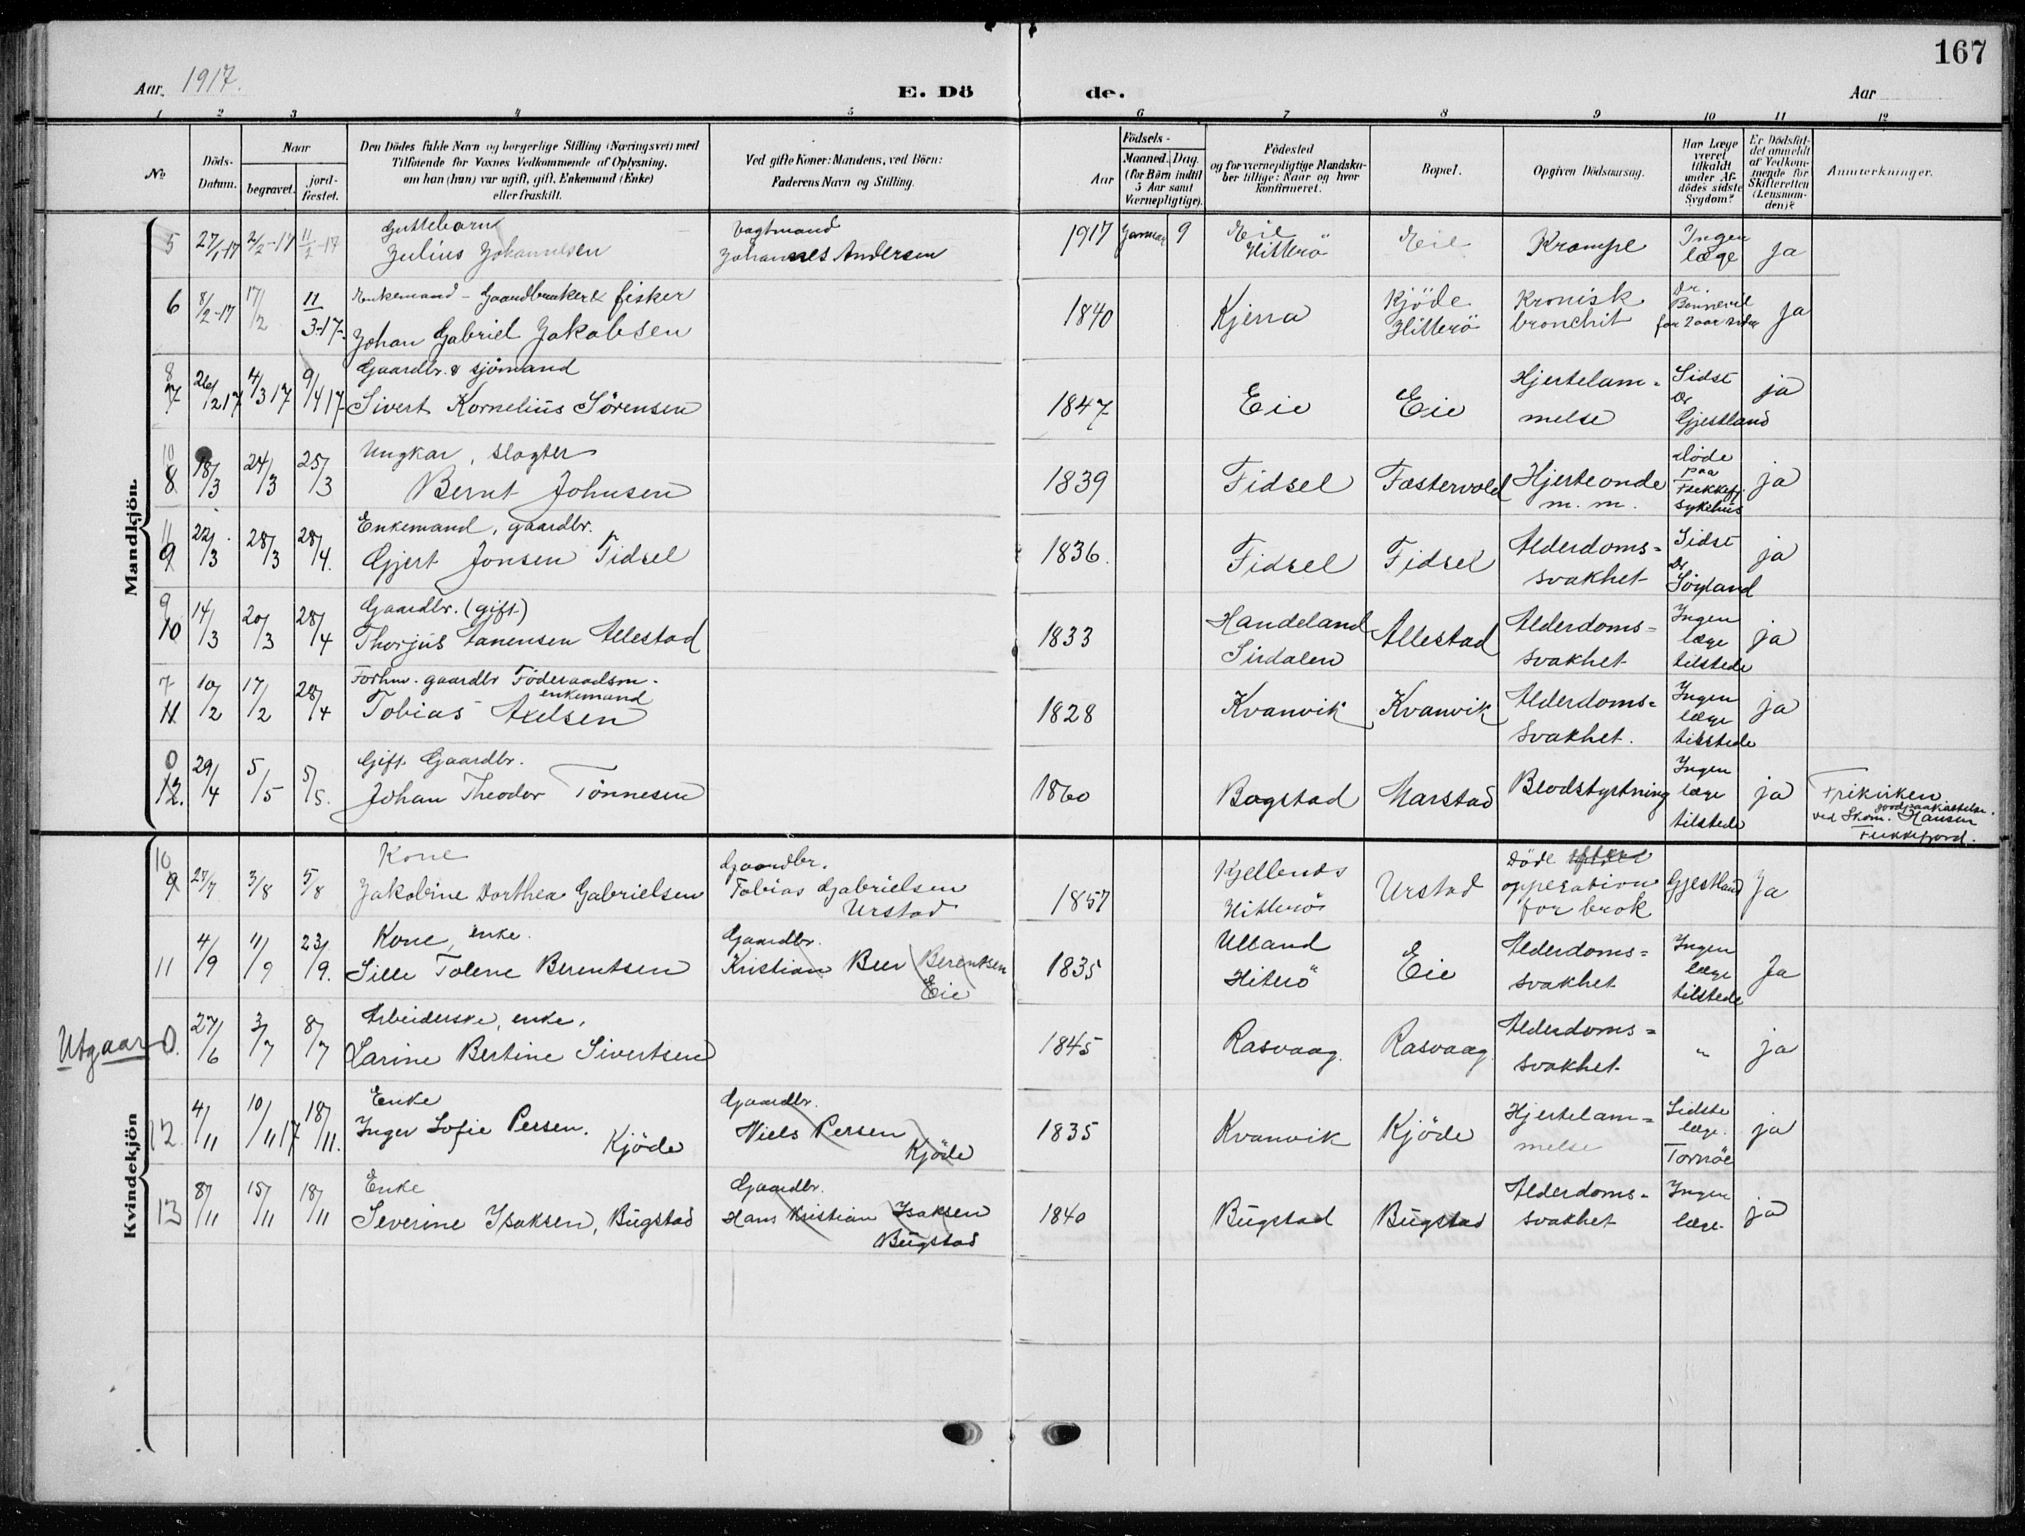 167
Aar. 1917.
E. Dö de.
Aar
1 2 3 4 5 6 7 8 9 10 11 12
No
Döds-Datum.
Naar
begravet.
jord-fæstet.
Den Dödes fulde Navn og borgerlige Stilling (Næringsvei) med
Tilföiende for Voxnes Vedkommende af Oplysning,
om han (hun) var ugift, gift, Enkemand (Enke)
eller fraskilt.
Ved gifte Koner: Mandens, ved Börn:
Faderens Navn og Stilling.
Födsels-
Aar
Maaned. Dag.
(for Börn indtil
5 Aar samt
Værnepligtige).
Födested
og for værnepligtige Mandska-
ber tillige: Naar og hvor
konfirmeret.
Bopæl.
Opgiven Dödsaarsag.
Har Læge
været
tilkaldt
under Af-
dödes sidste
Sygdom?
Er Dödsfal-
det anmeldt
af Vedkom-
mende for
Skifteretten
(Lensman-
den)?
Anmærkninger.
Mandkjön.
5 27/1-17 2/2-17 11/2-17 Guttebarn
Julius Johannesen
Vagtmand
Johannes Andersen
1917 Januar 9 Eie
Hitterö
Eie Krampe Ingen
læge
ja
6 8/2-17 17/2 11/3-17- Enkemand - Gaardbruker & fisker
Johan Gabriel Jakobsen
1840 Kjerra Kjöde
Hitterö
Kronisk
bronchit
Dr.
Bonnevie
for 2 aar siden
ja
8
7 26/2 17 4/3 17 9/4 17- Gaardbr. & sjömand
Sivert Kornelius Sörensen
1847 Eie Eie Hjertelam-
melse
Sidst
Dr
Gjestland
ja
10
8 18/3 24/3 25/3 Ungkar, slagter
Bernt Johnsen
1839 Fidsel Fæstervold Hjerteonde
m. m.
döde
paa
Flekkefj.
sykehus
ja
11
9 22/3 28/3 28/4. Enkemand, gaardbr.
Gjert Jonsen Fidsel
1836. Fidsel Fidsel Alderdoms-
svakhet
Sidst
Dr
Söyland
ja
9
10 14/3 20/3 28/4 Gaardbr. (gift)
Thorjus Aanensen Allestad
1833 Handeland
Sirdalen
Allestad Alderdoms-
svakhet
Ingen
læge
tilstede
ja
7
11 10/2 17/2 28/4 Forhv. gaardbr Föderaadsm.
enkemand
Tobias Axelsen
1828 Kvanvik Kvanvik Alderdoms-
svakhet.
Ingen
læge
tilstede
ja
0
12. 29/4 5/5 5/5. Gift Gaardbr.
Johan Theodor Tönnesen
1860 Bogstad Marstad Blodstyrtning Ingen
læge
tilstede
ja Frikirken
jordpaakastelse
ved Skom. Hansen
Flekkefjord.
Kvindekjön
10
9 27/7 3/8 5/8 Kone
Jakobine Dorthea Gabrielsen
Gaardbr.
Tobias Gabrielsen
Urstad
1857 Kjellands
Hitterö
Urstad Döde efter
opperation
for brok
Gjestland Ja
11 4/9 11/9 23/9. Kone, enke.
Sille Tolene Berentsen
Gaardbr.
Kristian Beer Berentsen
Eie
1835 Ulland
Hiterö
Eie Alderdoms-
svakhet
Ingen
læge
tilstede
Ja
Utgaar 0. 27/6 3/7 8/7 Arbeiderske, enke,
Larine Bertine Sivertsen
1845 Rasvaag. Rasvaag Alderdoms-
svakhet
" ja
12. 4/11 10/11 17 18/11. Enke
Inger Sofie Persen.
Kjöde
Gaardbr.
Niels Persen
Kjöde
1835 Kvanvik Kjöde Hjertelam-
melse
Sidste
læge.
Tornöe
ja
13 8/11 15/11 18/11 Enke
Severine Isaksen, Bugstad
Gaardbr.
Hans Kristian Isaksen
Bugstad
1840 Bugstad Bugstad Alderdoms-
svakhet
Ingen
læge
ja